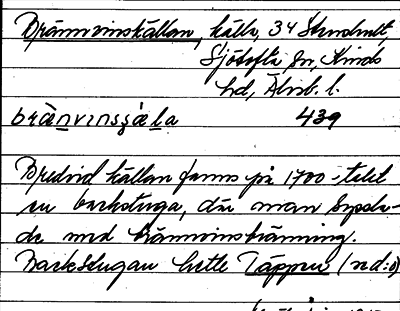 Brännvinskällan, källa, 34 Strudhult,
Sjötofta sn, Kinds
hd, Älvsb. l.
brä̀nvınsʒ́ä̀la 439
Bredvid källan fanns på 1700-talet
en backstuga, där man syssla-
de med brännvinsbränning.
Backstugan hette Täppen (nd:o)